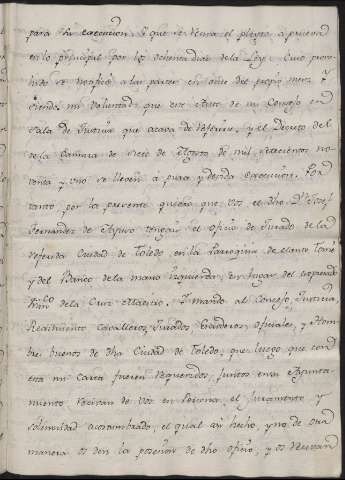 para su execucion, y que se reciva el pleyto á prueva
en lo principal por los ochenta dias de la Ley: Cuio prove
hido se notificó a las partes en onze del propio mes: y
siendo mi voluntad que este Auto de mi Consejo en
Sala de Justicia que acava de referirse, y el Decreto del
de la Camara de siete de Agosto de mil setecientos no
venta y uno se lleven á pura y devida execucion. Por
tanto por la presente quiero que vos el dho Dn Josef
Fernandez de Aguero tengais el oficio de Jurado de la
referida Ciudad de Toledo, en la Parroquia de Santo Tomé
y del Banco de la mano Izquierda, en lugar del expresado
Franco de la Cruz Maestro. Y mando al Concejo, Justicia,
Reximiento Cavalleros, Jurados, Escuderos, Oficiales, y Hom
bres buenos de dha Ciudad de Toledo, que luego que con
esta mi Carta fueren requeridos, juntos en su Ayunta
miento reciban de vos en Persona, el Juramento y
solemnidad acostumbrado, el qual asi hecho, y no de otra
manera os den la posesion de dho oficio, y os recivan